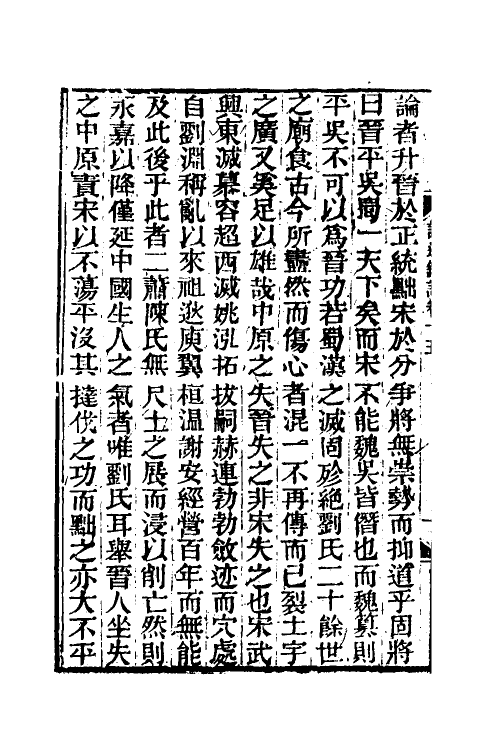 論者升晉於正統黜宋於分爭將無崇勢而抑道乎固將
曰晉平吳蜀一天下矣而宋不能魏吳皆僭也而魏簒則
平吳不可以爲晉功若蜀漢之滅固殄絕劉氏二十餘世
之廟食古今所衋然而傷心者混一不再傳而已裂土宇
之廣又奚足以雄哉中原之失晉失之非宋失之也宋武
興東滅慕容超西滅姚泓拓拔嗣赫連勃勃斂迹而穴處
自劉淵稱亂以來祖逖庾翼桓温謝安經營百年而無能
及此後乎此者二蕭陳氏無尺土之展而浸以削亡然則
永嘉以降僅延中國生人之氣者唯劉氏耳舉晉人坐失
之中原責宋以不蕩平沒其撻伐之功而黜之亦大不平